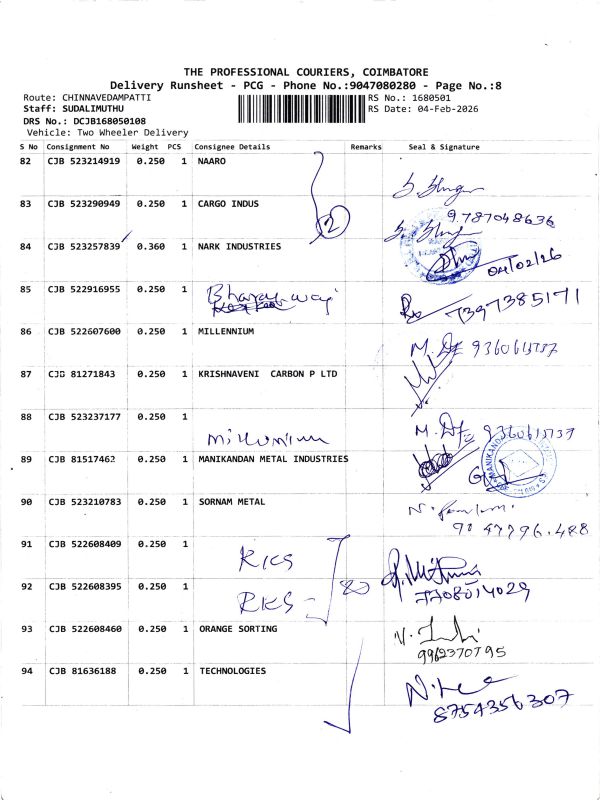 THE PROFESSIONAL COURIERS, COIMBATORE
Delivery Runsheet - PCG - Phone No.:9047080280 - Page No.:8
Route: CHINNAVEDAMPATTI
RS No.: 1680501
Staff: SUDALIMUTHU
RS Date: 04-Feb-2026
DRS No.: DCJB168050108
Vehicle: Two Wheeler Delivery
S No Consignment No Weight PCS Consignee Details Remarks Seal & Signature
82 CJB 523214919 0.250 1 NAARO
83 CJB 523290949 0.250 1 CARGO INDUS 2 9787048636
84 CJB 523257839 0.360 1 NARK INDUSTRIES 04/02/26
85 CJB 522916955 0.250 1 7397385171
86 CJB 522607600 0.250 1 MILLENNIUM
87 CJB 81271843 0.250 1 KRISHNAVENI CARBON P LTD
88 CJB 523237177 0.250 1 Millenium
89 CJB 81517462 0.250 1 MANIKANDAN METAL INDUSTRIES
90 CJB 523210783 0.250 1 SORNAM METAL
91 CJB 522608409 0.250 1 RKS
92 CJB 522608395 0.250 1 RKS 7708014029
93 CJB 522608460 0.250 1 ORANGE SORTING 9962370795
94 CJB 81636188 0.250 1 TECHNOLOGIES 8754356307